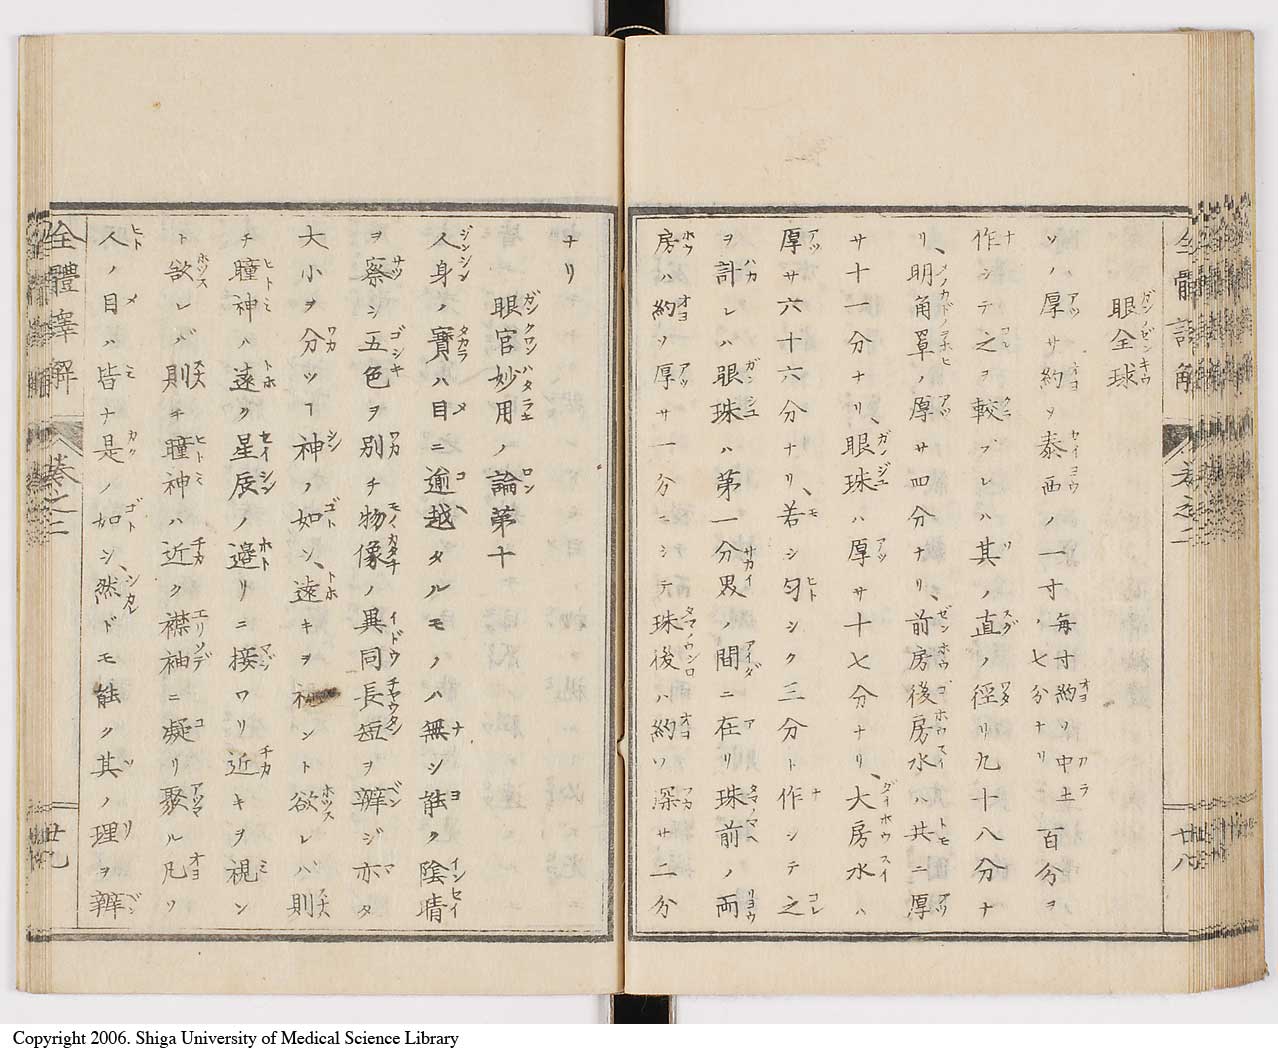 眼全球
ソノ厚サ約ヲ泰西ノ一寸毎寸約ソ中土ノ七分ナリ百分ヲ
作シテ之ヲ較ブレハ其ノ直ノ徑リ九十八分ナ
リ、明角罩ノ厚サ四分ナリ、前房後房水ハ共ニ厚
サ十一分ナリ、眼珠ハ厚サ十七分ナリ、大房水ハ
厚サ六十六分ナリ、若シ匀シク三分ト作シテ之
ヲ計レハ眼珠ハ第一分界ノ間ニ在リ珠前ノ両
房ハ約ソ厚サ一分ニシテ珠後ハ約ソ深サ二分
ナリ
眼官妙用ノ論第十
人身ノ寳ハ目ニ逾越タルモノハ無シ能ク陰晴
ヲ察シ五色ヲ別チ物像ノ異同長短ヲ辨ジ亦タ
大小ヲ分ツヿ神ノ如シ、遠キヲ視ント欲レバ則
チ瞳神ハ遠ク星辰ノ邉リニ接ワリ近キヲ視ン
ト欲レバ則チ瞳神ハ近ク襟袖ニ凝リ聚ル凡ソ
人ノ目ハ皆ナ是ノ如シ、然ドモ能ク其ノ理ヲ辨
全體譯解
卷之二
廿九
Copyright 2006. Shiga University of Medical Science Library